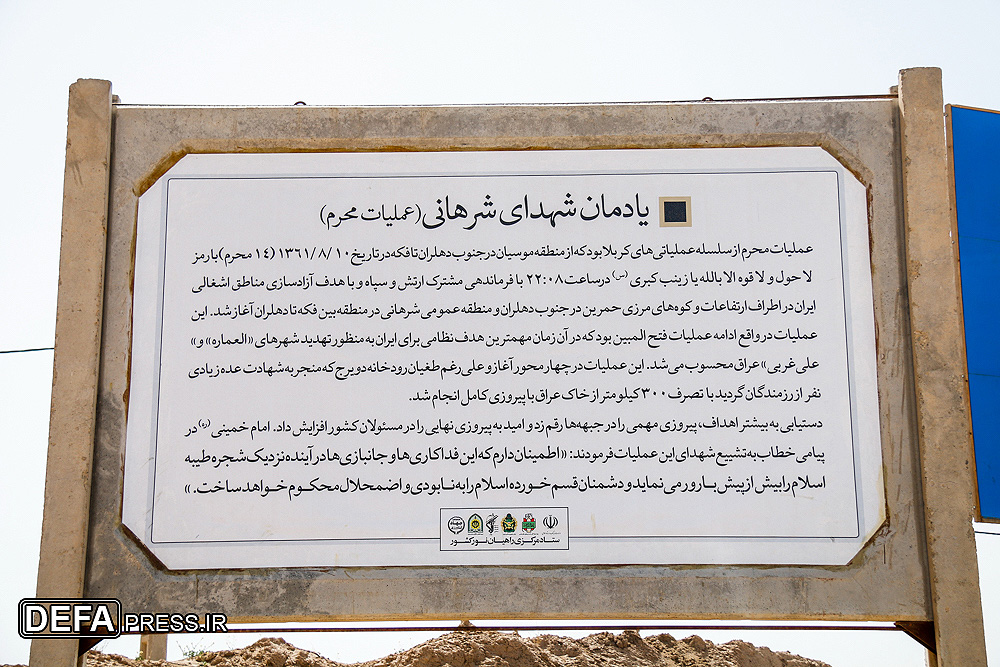 یادمان شهدای شرهانی (عملیات محرم)
عملیات محرم از سلسله عملیاتی های کربلا بود که از منطقه موسیان در جنوب دهلران تا فکه در تاریخ ۱۳۶۱/۸/۱۰ (۱۴ محرم) با رمز
لا حول و لا قوه الا بالله یا زینب کبری (س) در ساعت ۲۲:۰۸ با فرماندهی مشترک ارتش و سپاه و با هدف آزادسازی مناطق اشغالی
ایران در اطراف ارتفاعات و کوه‌های مرزی حمرین در جنوب دهلران و منطقه عمومی شرهانی در منطقه بین فکه تا دهلران آغاز شد. این
عملیات در واقع ادامه عملیات فتح المبین بود که در آن زمان مهمترین هدف نظامی برای ایران به منظور تهدید شهرهای «العماره» و «
علی غربی» عراق محسوب می‌شد. این عملیات در چهار محور آغاز و علی رغم طغیان رودخانه دویرج که منجر به شهادت عده زیادی
نفر از رزمندگان گردید با تصرف ۳۰۰ کیلومتر از خاک عراق با پیروزی کامل انجام شد.
دستیابی به بیشتر اهداف، پیروزی مهمی را در جبهه‌ها رقم زد و امید به پیروزی نهایی را در مسئولان کشور افزایش داد. امام خمینی (ره) در
پیامی خطاب به تشییع شهدای این عملیات فرمودند: «اطمینان دارم که این فداکاری‌ها و جانبازی‌ها در آینده نزدیک شجره طیبه
اسلام را بیش از پیش بارور می نماید و دشمنان قسم خورده اسلام را به نابودی و اضمحلال محکوم خواهد ساخت.»
ستاد مرکزی راهیان نور کشور
DEFAPRESS.IR